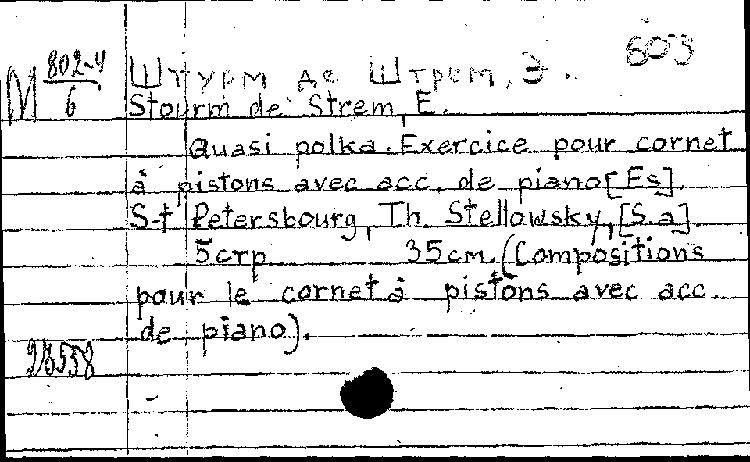 М 802-4/6
Штурм де Штрем, Э. 603
Stourm de Strem, E.
Quasi polka. Exercice pour cornet
à pistons avec acc. de piano[Es].
S-t Petersbourg, Th. Stellowsky, [S.a].
5стр 35см. (Compositions
pour le cornet à pistons avec acc.
de piano).